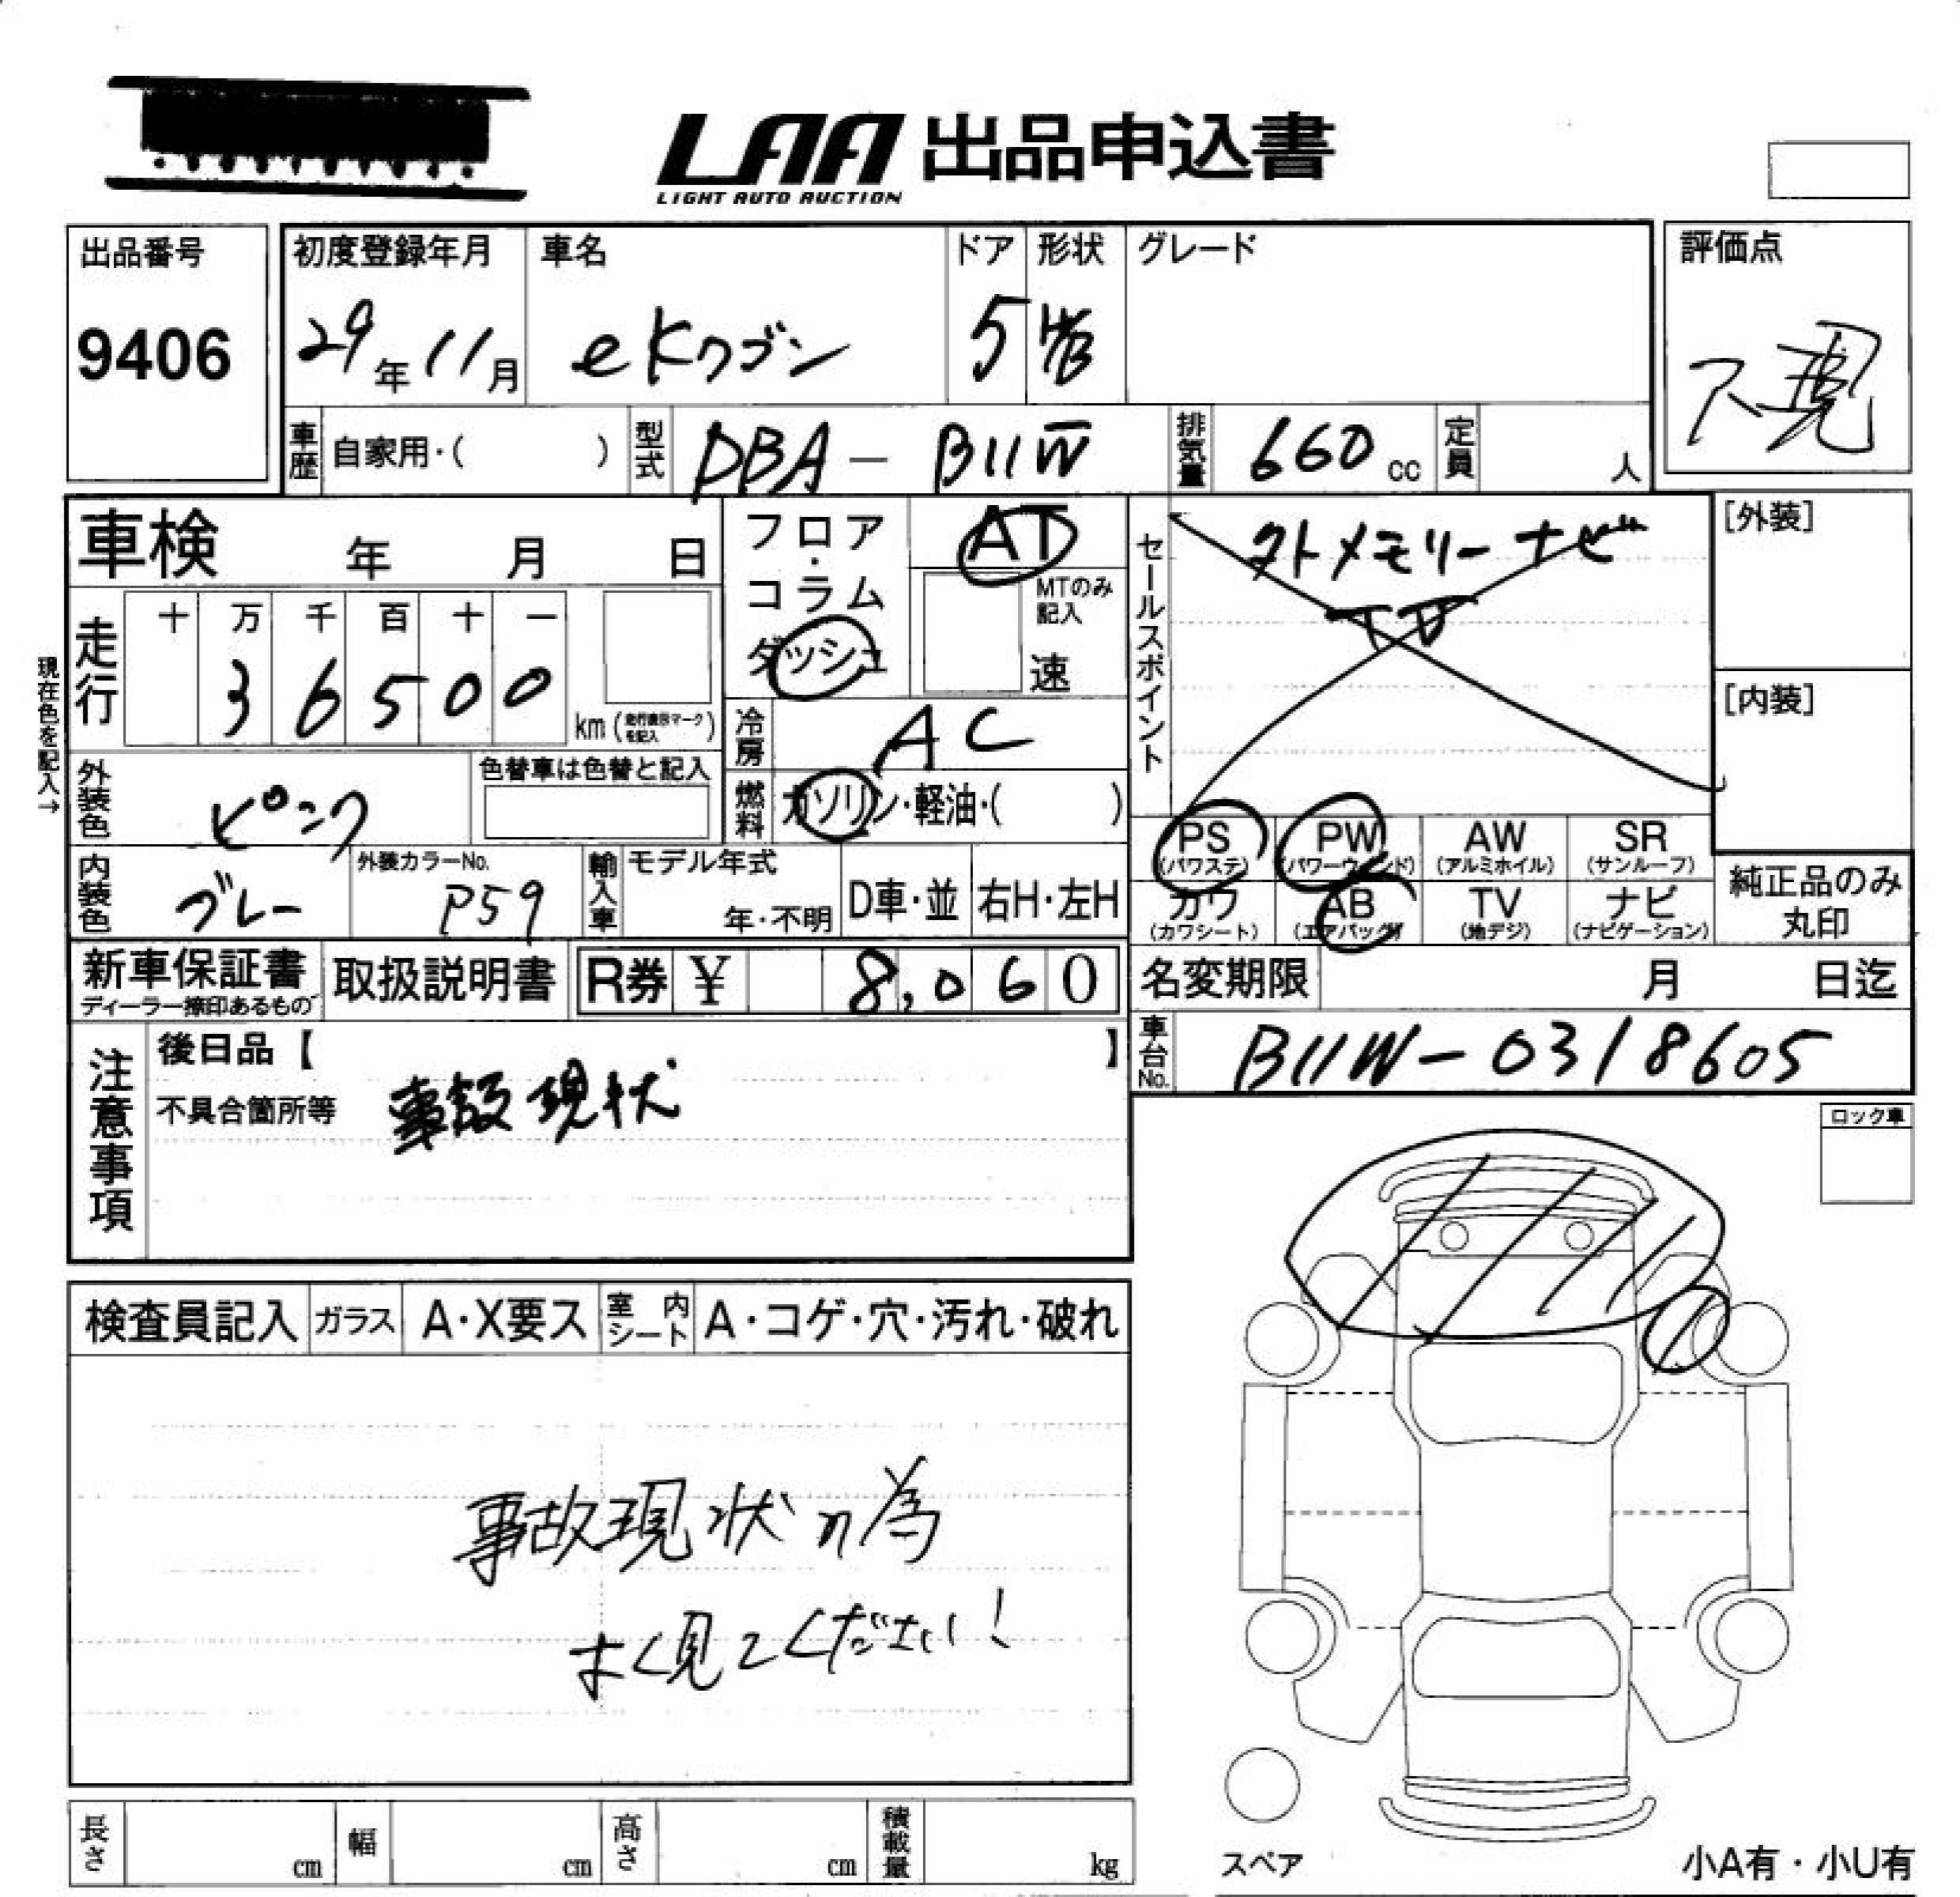 LAA 出品申込書
LIGHT AUTO AUCTION
出品番号
9406
初度登録年月
29年11月
車名
eKワゴン
ドア
5
形状
HB
グレード
評価点
不現
車歴
自家用・( )
型式
DBA-B11W
排気量
660cc
定員
人
車検 年 月 日
フロア・コラム
ダッシュ
AT
MTのみ記入
速
セールスポイント
外メモリーナビ
TV
[外装]
[内装]
現在色を記入→
走行
十 万 千 百 十 一
3 6 5 0 0
km (走行疑義マークを記入)
冷房
AC
燃料
ガソリン・軽油・( )
外装色
ピンク
色替車は色替と記入
内装色
グレー
外装カラーNo.
P59
輸入車
モデル年式
年・不明
D車・並
右H・左H
PS (パワステ)
PW (パワーウィンド)
AW (アルミホイル)
SR (サンルーフ)
カワ (カワシート)
AB (エアバッグ)
TV (地デジ)
ナビ (ナビゲーション)
純正品のみ
丸印
新車保証書
ディーラー捺印あるもの
取扱説明書
R券 ¥ 8,060
名変期限 月 日迄
車台No.
B11W-0318605
注意事項
後日品【 】
不具合箇所等
事故現状
ロック車
検査員記入
ガラス
A・X要ス
室内シート
A・コゲ・穴・汚れ・破れ
事故現状の為
よく見てください!
長さ cm
幅 cm
高さ cm
積載量 kg
スペア
小A有・小U有